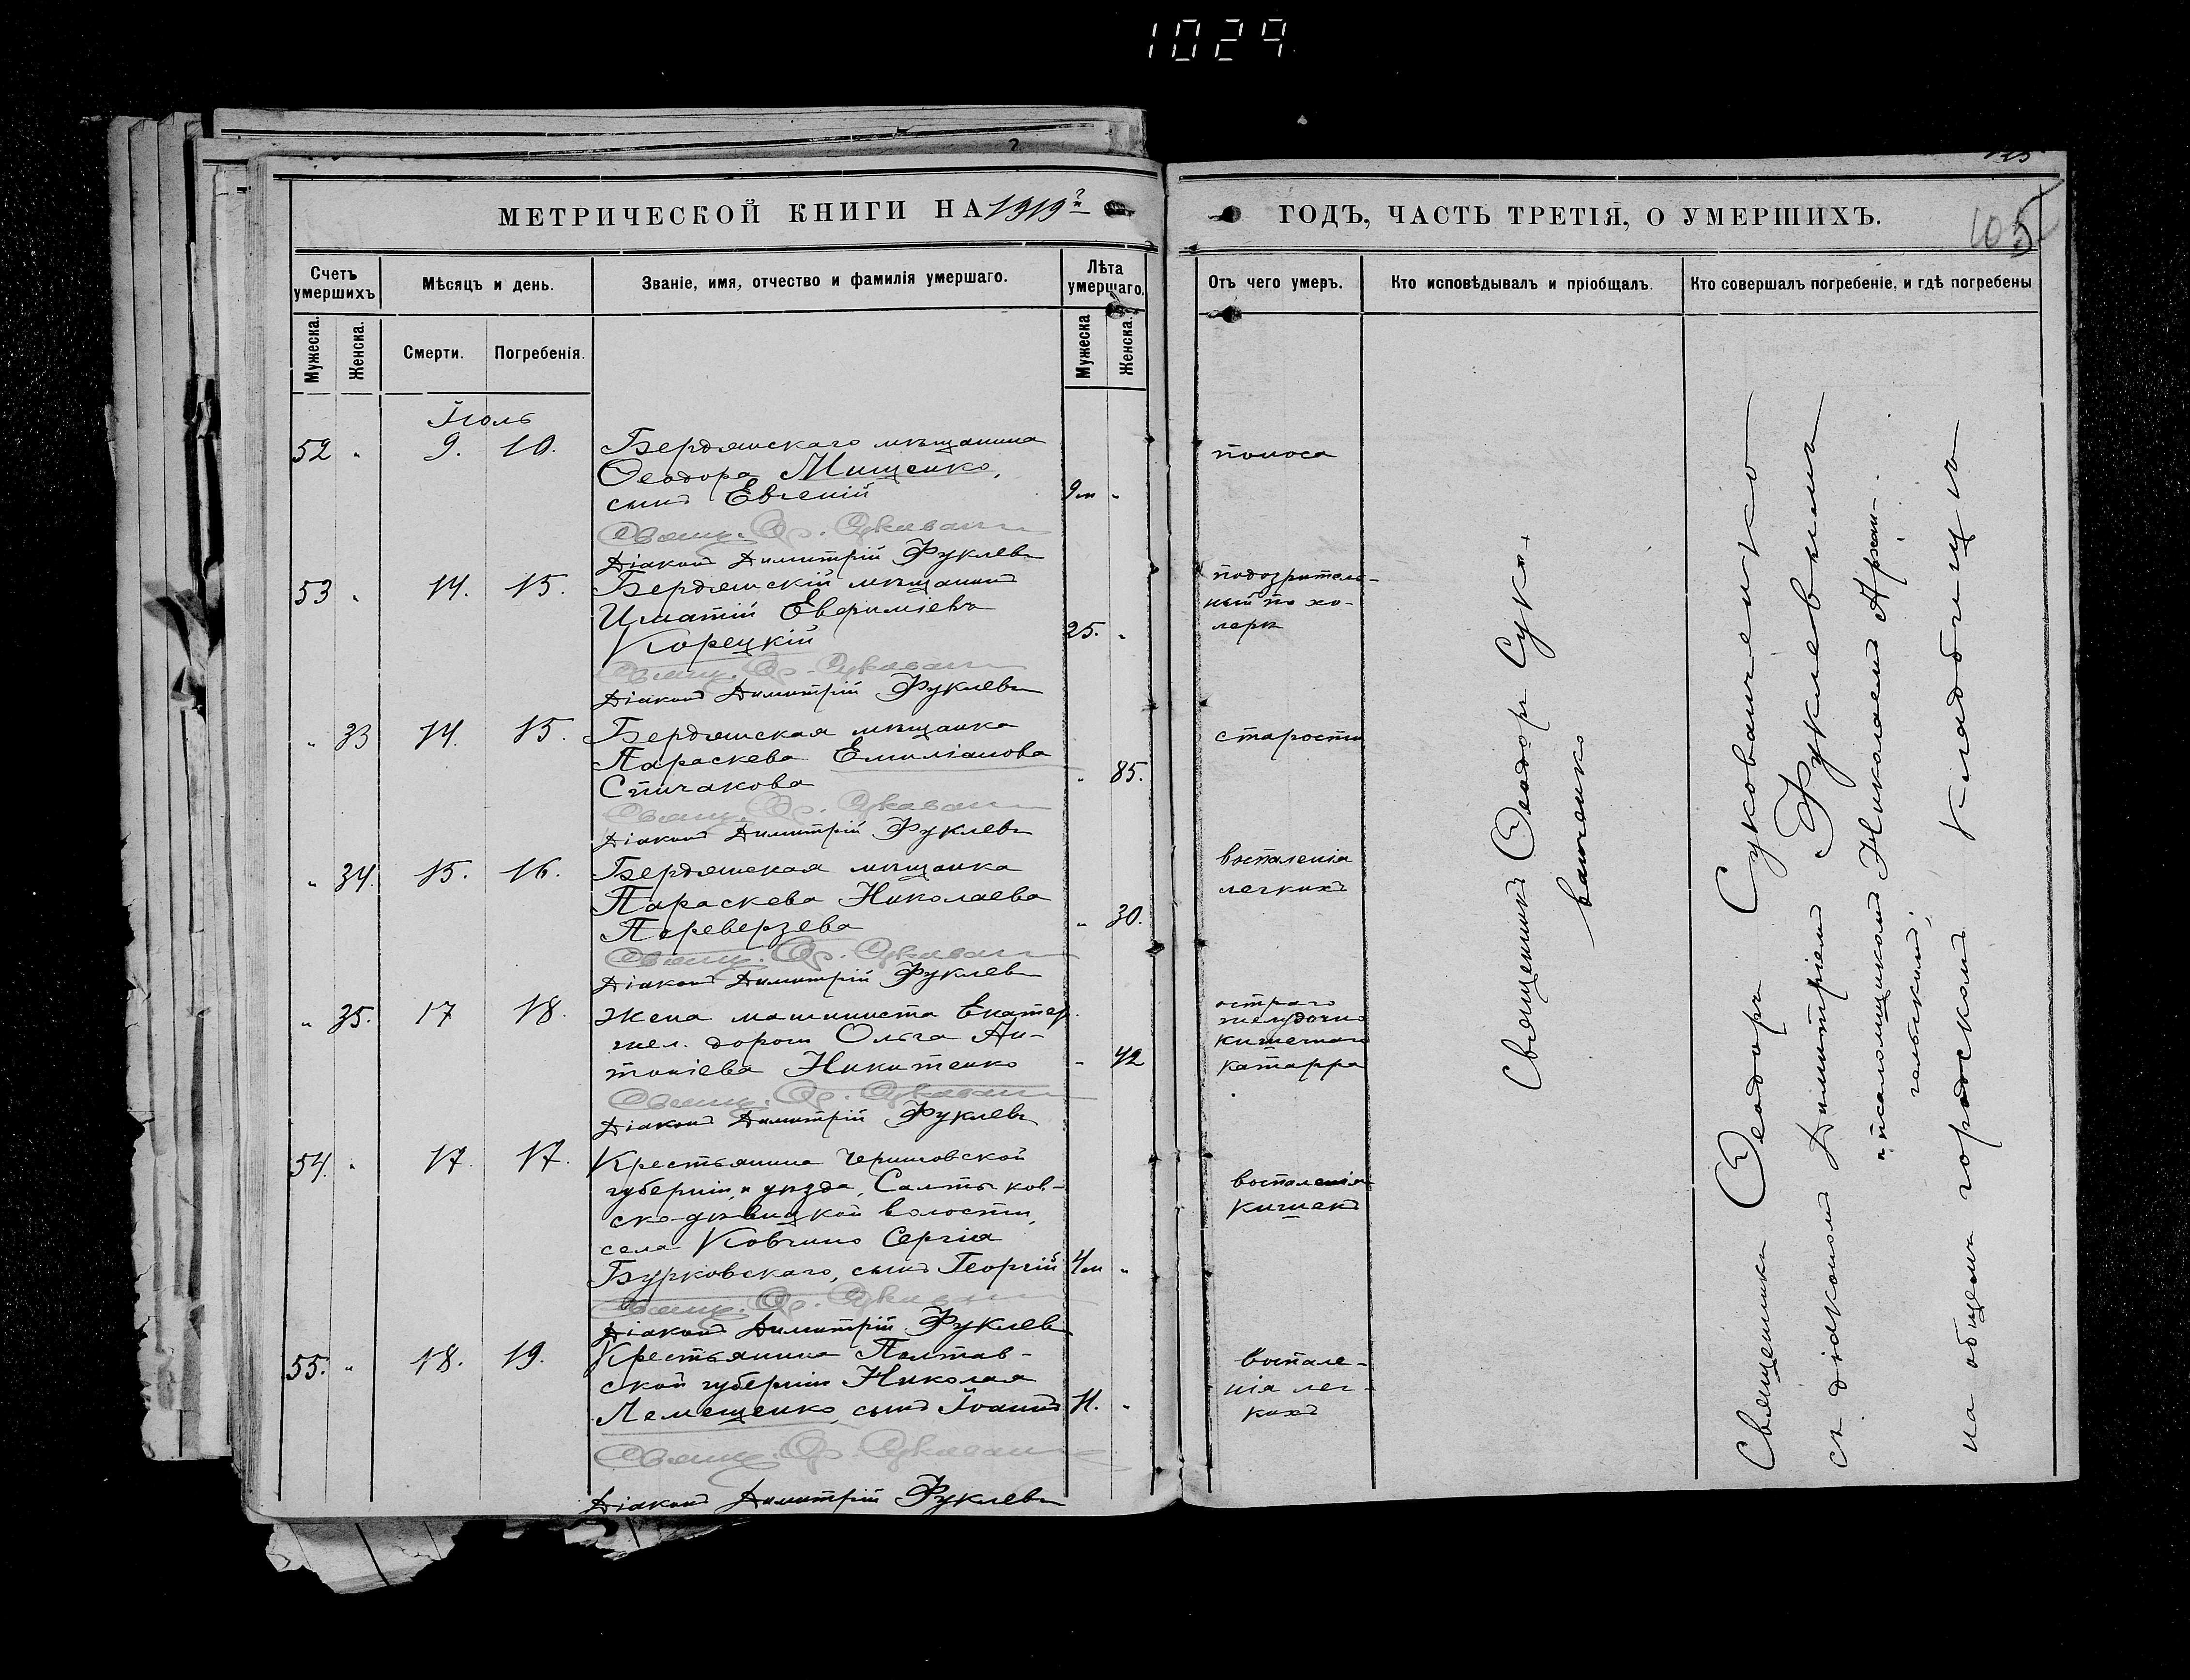 1029
105
МЕТРИЧЕСКОЙ КНИГИ НА 1919 ГОДЪ, ЧАСТЬ ТРЕТІЯ, О УМЕРШИХЪ.
Счетъ умершихъ
Мѣсяцъ и день.
Званіе, имя, отчество и фамилія умершаго.
Лѣта умершаго.
Отъ чего умеръ.
Кто исповѣдывалъ и пріобщалъ.
Кто совершалъ погребеніе, и гдѣ погребены
Мужеска.
Женска.
Смерти.
Погребенія.
Мужеска
Женска.
Іюль
52 " 9. 10. Бердянскаго мѣщанина
Ѳеодора Мищенко,
сынъ Евгеній 9 м "
поноса
Свящ. Ѳ.
Діаконъ Димитрій Фуклевъ
53 " 14. 15. Бердянскій мѣщанинъ
Игнатій Евфиміевъ
Корецкій 25. "
подозритель-
ный по хо-
лерѣ
Свящ. Ѳ.
Діаконъ Димитрій Фуклевъ
" 33 14. 15. Бердянская мѣщанка
Параскева Емиліанова
Спичакова " 85.
старости
Свящ. Ѳ.
Діаконъ Димитрій Фуклевъ
" 34. 15. 16. Бердянская мѣщанка
Параскева Николаева
Переверзева " 30.
воспаленія
легкихъ
Свящ. Ѳ.
Діаконъ Димитрій Фуклевъ
" 35. 17 18. Жена машиниста Екатер.
жел. дороги Ольга Ан-
тоніева Никитенко " 42
остраго
желудочно
кишечнаго
катарра
Свящ. Ѳ.
Діаконъ Димитрій Фуклевъ
54. " 17. 17. Крестьянина Черниговской
губерніи, и уѣзда, Салтыков-
ско-дѣвицкой волости,
села Ковчино Сергія
Бурковскаго, сынъ Георгій 4 м "
воспаленія
кишекъ
Свящ. Ѳ.
Діаконъ Димитрій Фуклевъ
55. " 18. 19. Крестьянина Полтав-
ской губерніи Николая
Лемещенко, сынъ Іоаннъ 11. "
воспале-
нія лег-
кихъ
Свящ. Ѳ.
Діаконъ Димитрій Фуклевъ
Священникъ Ѳеодоръ Суко-
ванченко
Священникъ Ѳеодоръ Сукованченко
съ діакономъ Димитріемъ Фуклевымъ
и псаломщикомъ Николаемъ Архан-
гельскимъ,
на общемъ городскомъ кладбищѣ